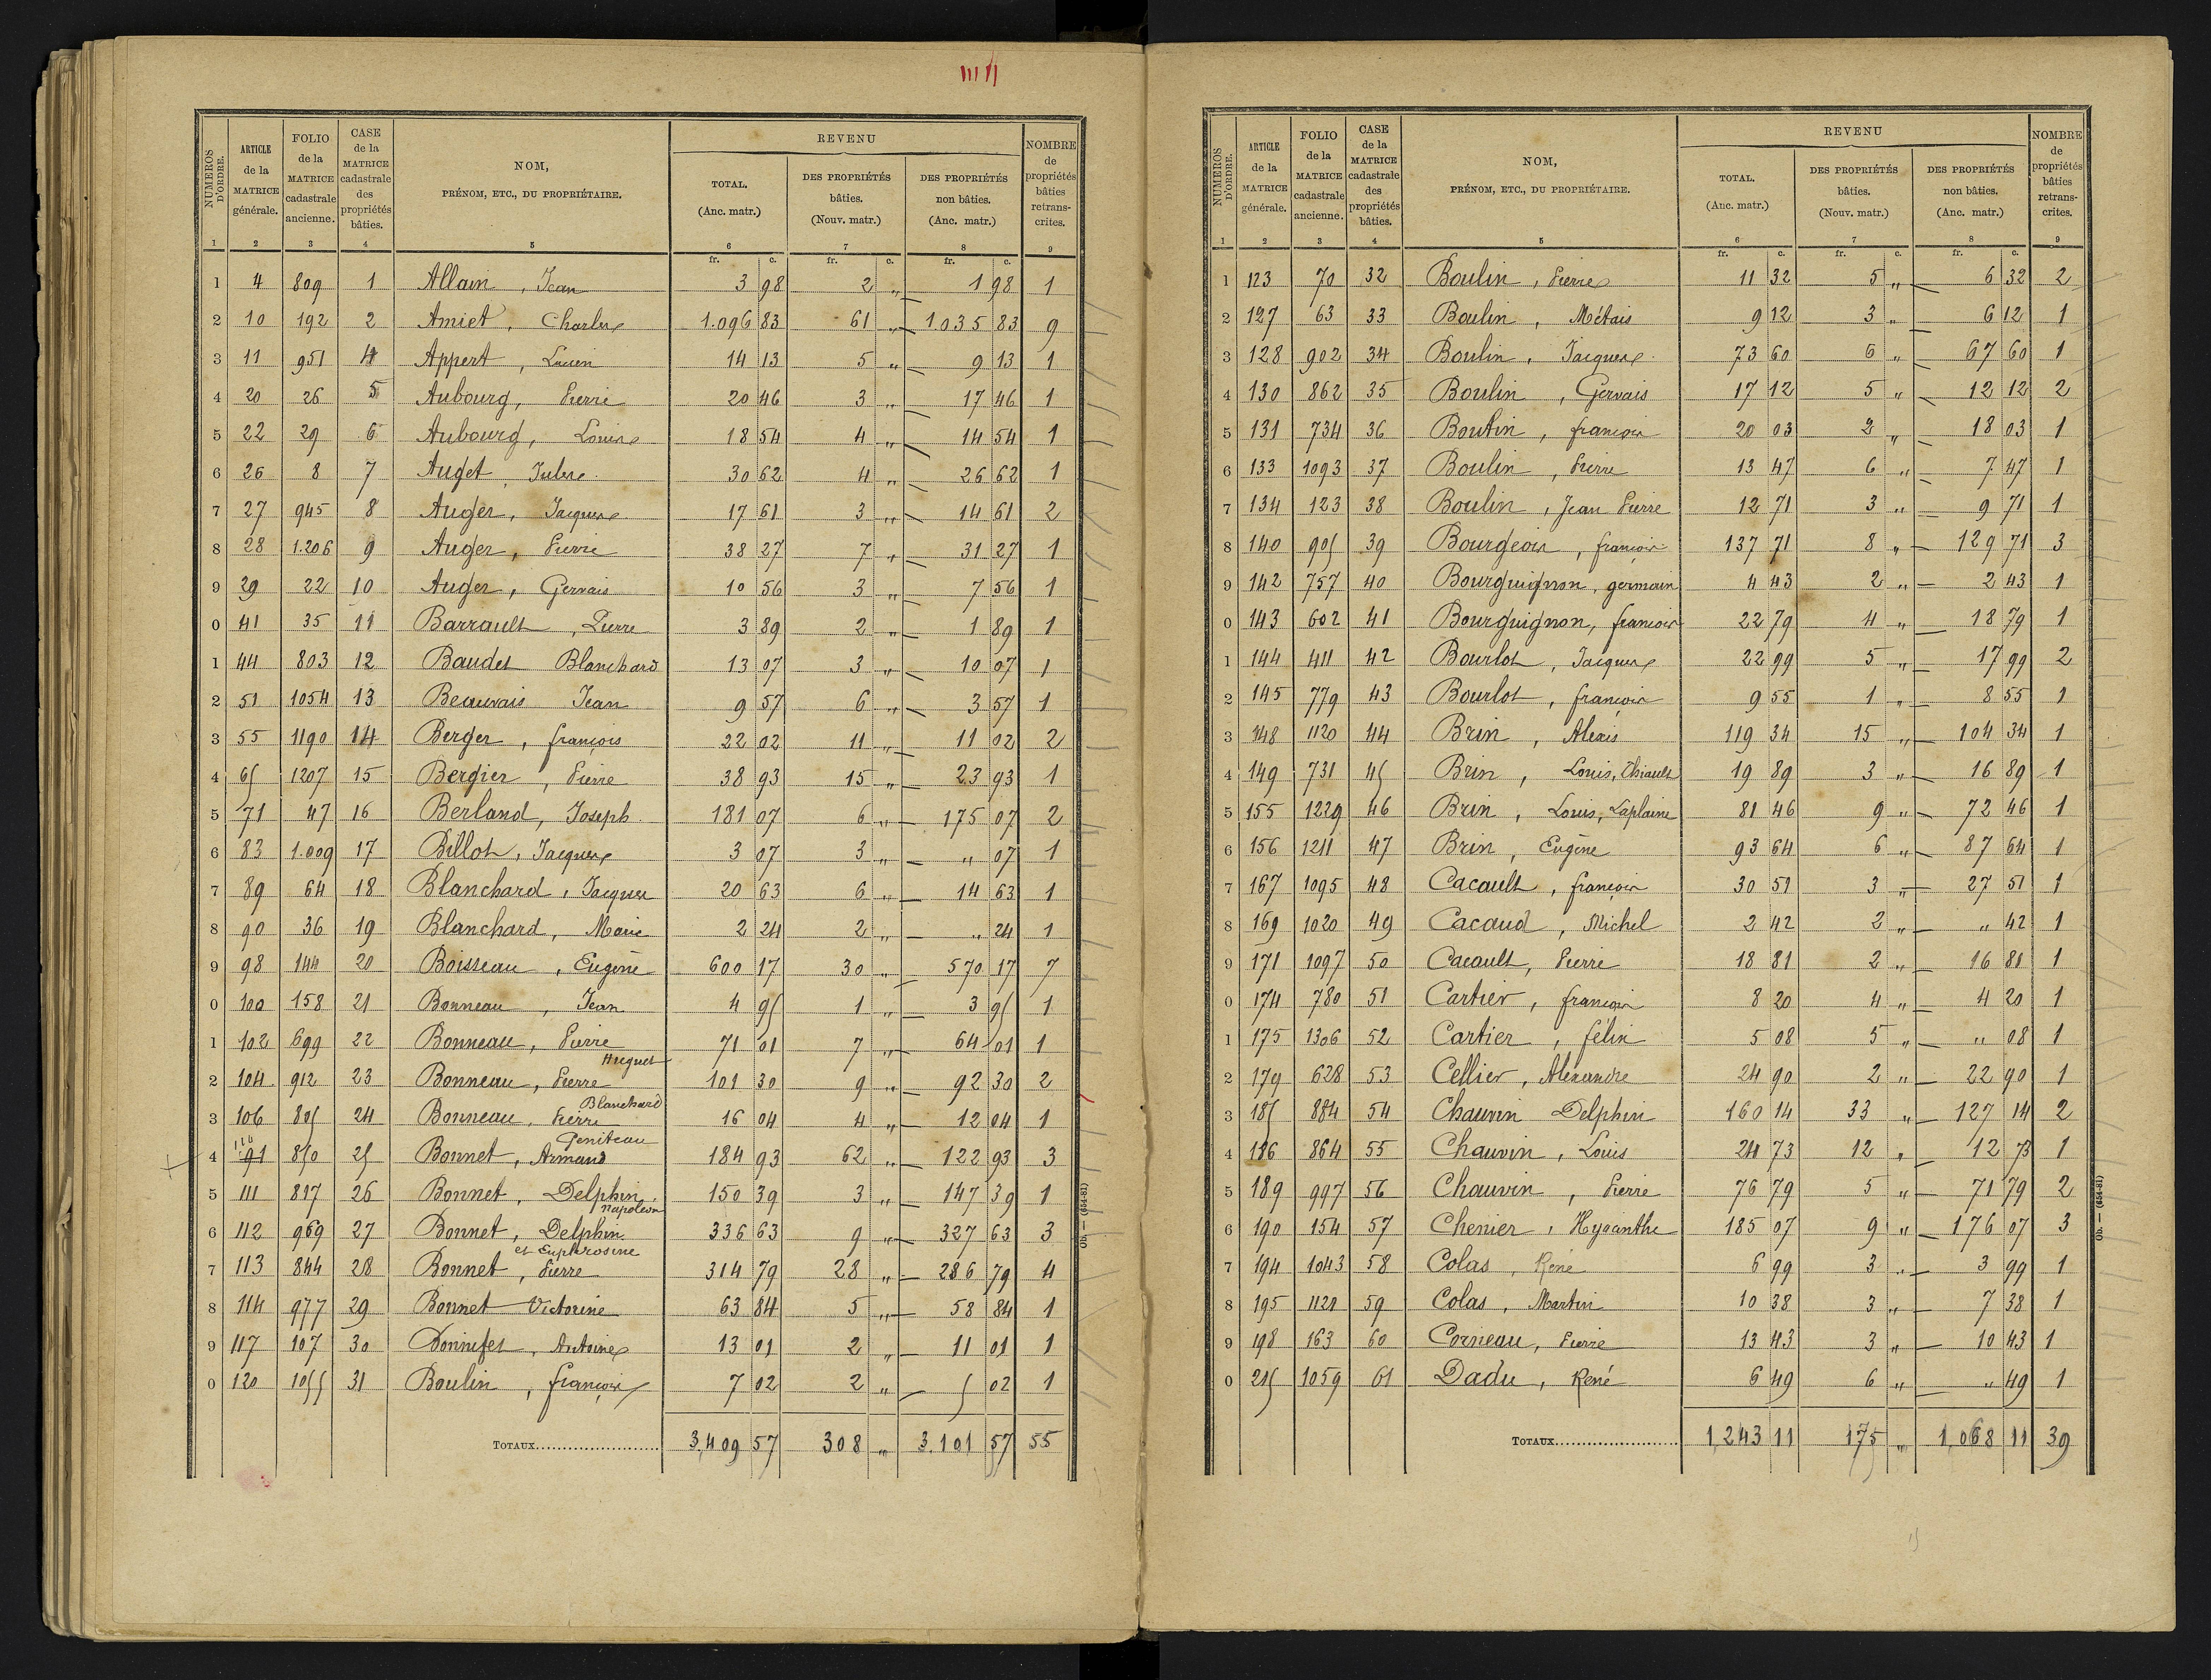 NUMEROS D'ORDRE. | ARTICLE de la MATRICE générale. | FOLIO de la MATRICE cadastrale ancienne. | CASE de la MATRICE cadastrale des propriétés bâties. | NOM, PRÉNOM, ETC., DU PROPRIÉTAIRE. | REVENU | NOMBRE de propriétés bâties retranscrites.
TOTAL. (Anc. matr.) | DES PROPRIÉTÉS bâties. (Nouv. matr.) | DES PROPRIÉTÉS non bâties. (Anc. matr.)
1 2 3 4 5 6 7 8 9
fr. c. fr. c. fr. c.
1 4 809 1 Allain, Jean 3 98 2 " 1 98 1
2 10 192 2 Amiet, Charles 1.096 83 61 " 1.035 83 9
3 11 951 4 Appert, Lucien 14 13 5 " 9 13 1
4 20 26 5 Aubourg, Pierre 20 46 3 " 17 46 1
5 22 29 6 Aubourg, Louis 18 54 4 " 14 54 1
6 26 8 7 Auget, Jules 30 62 4 " 26 62 1
7 27 945 8 Auger, Jacques 17 61 3 " 14 61 2
8 28 1.206 9 Auger, Pierre 38 27 7 " 31 27 1
9 29 22 10 Auger, Gervais 10 56 3 " 7 56 1
0 41 35 11 Barrault, Pierre 3 89 2 " 1 89 1
1 44 803 12 Baudet Blanchard 13 07 3 " 10 07 1
2 51 1054 13 Beauvais Jean 9 57 6 " 3 57 1
3 55 1190 14 Berger, françois 22 02 11 " 11 02 2
4 65 1207 15 Bergier, Pierre 38 93 15 " 23 93 1
5 71 47 16 Berland, Joseph 181 07 6 " 175 07 2
6 83 1.009 17 Billot, Jacques 3 07 3 " " 07 1
7 89 64 18 Blanchard, Jacques 20 63 6 " 14 63 1
8 90 36 19 Blanchard, Marie 2 24 2 " " 24 1
9 98 144 20 Boisseau, Eugène 600 17 30 " 570 17 7
0 100 158 21 Bonneau, Jean 4 95 1 " 3 95 1
1 102 699 22 Bonneau, Pierre 71 01 7 " 64 01 1
Huguet
2 104 912 23 Bonneau, Pierre 101 30 9 " 92 30 2
Blanchard
3 106 805 24 Bonneau, Pierre 16 04 4 " 12 04 1
Geniteau
4 110 91 850 25 Bonnet, Armand 184 93 62 " 122 93 3
5 111 817 26 Bonnet, Delphin 150 39 3 " 147 39 1
Napoléon
6 112 969 27 Bonnet, Delphin 336 63 9 " 327 63 3
et Euphrosine
7 113 844 28 Bonnet, Pierre 314 79 28 " 286 79 4
8 114 977 29 Bonnet Victorine 63 84 5 " 58 84 1
9 117 107 30 Bonnifet, Antoine 13 01 2 " 11 01 1
0 120 1055 31 Boulin, françois 7 02 2 " 5 02 1
TOTAUX 3,409 57 308 " 3.101 57 55
Ob. — (654-81)
NUMEROS D'ORDRE. | ARTICLE de la MATRICE générale. | FOLIO de la MATRICE cadastrale ancienne. | CASE de la MATRICE cadastrale des propriétés bâties. | NOM, PRÉNOM, ETC., DU PROPRIÉTAIRE. | REVENU | NOMBRE de propriétés bâties retranscrites.
TOTAL. (Anc. matr.) | DES PROPRIÉTÉS bâties. (Nouv. matr.) | DES PROPRIÉTÉS non bâties. (Anc. matr.)
1 2 3 4 5 6 7 8 9
fr. c. fr. c. fr. c.
1 123 70 32 Boulin, Pierre 11 32 5 " 6 32 2
2 127 63 33 Boulin, Métais 9 12 3 " 6 12 1
3 128 902 34 Boulin, Jacques 73 60 6 " 67 60 1
4 130 862 35 Boulin, Gervais 17 12 5 " 12 12 2
5 131 734 36 Boutin, françois 20 03 2 " 18 03 1
6 133 1093 37 Boulin, Pierre 13 47 6 " 7 47 1
7 134 123 38 Boulin, Jean Pierre 12 71 3 " 9 71 1
8 140 905 39 Bourgeois, françois 137 71 8 " 129 71 3
9 142 757 40 Bourguignon, germain 4 43 2 " 2 43 1
0 143 602 41 Bourguignon, françois 22 79 4 " 18 79 1
1 144 411 42 Bourlot, Jacques 22 99 5 " 17 99 2
2 145 779 43 Bourlot, françois 9 55 1 " 8 55 1
3 148 1120 44 Brin, Alexis 119 34 15 " 104 34 1
4 149 731 45 Brin, Louis, Thiault 19 89 3 " 16 89 1
5 155 1229 46 Brin, Louis, Laplaine 81 46 9 " 72 46 1
6 156 1211 47 Brin, Eugène 93 64 6 " 87 64 1
7 167 1095 48 Cacault, françois 30 51 3 " 27 51 1
8 169 1020 49 Cacaud, Michel 2 42 2 " " 42 1
9 171 1097 50 Cacault, Pierre 18 81 2 " 16 81 1
0 174 780 51 Cartier, françois 8 20 4 " 4 20 1
1 175 1306 52 Cartier, félix 5 08 5 " " 08 1
2 179 628 53 Cellier, Alexandre 24 90 2 " 22 90 1
3 185 884 54 Chauvin Delphin 160 14 33 " 127 14 2
4 186 864 55 Chauvin, Louis 24 73 12 " 12 73 1
5 189 997 56 Chauvin, Pierre 76 79 5 " 71 79 2
6 190 154 57 Chenier, Hyacinthe 185 07 9 " 176 07 3
7 194 1043 58 Colas, René 6 99 3 " 3 99 1
8 195 1121 59 Colas, Martin 10 38 3 " 7 38 1
9 198 163 60 Corneau, Pierre 13 43 3 " 10 43 1
0 215 1059 61 Dadu, René 6 49 6 " " 49 1
TOTAUX 1,243 11 175 " 1,068 11 39
Ob. — (654-81)